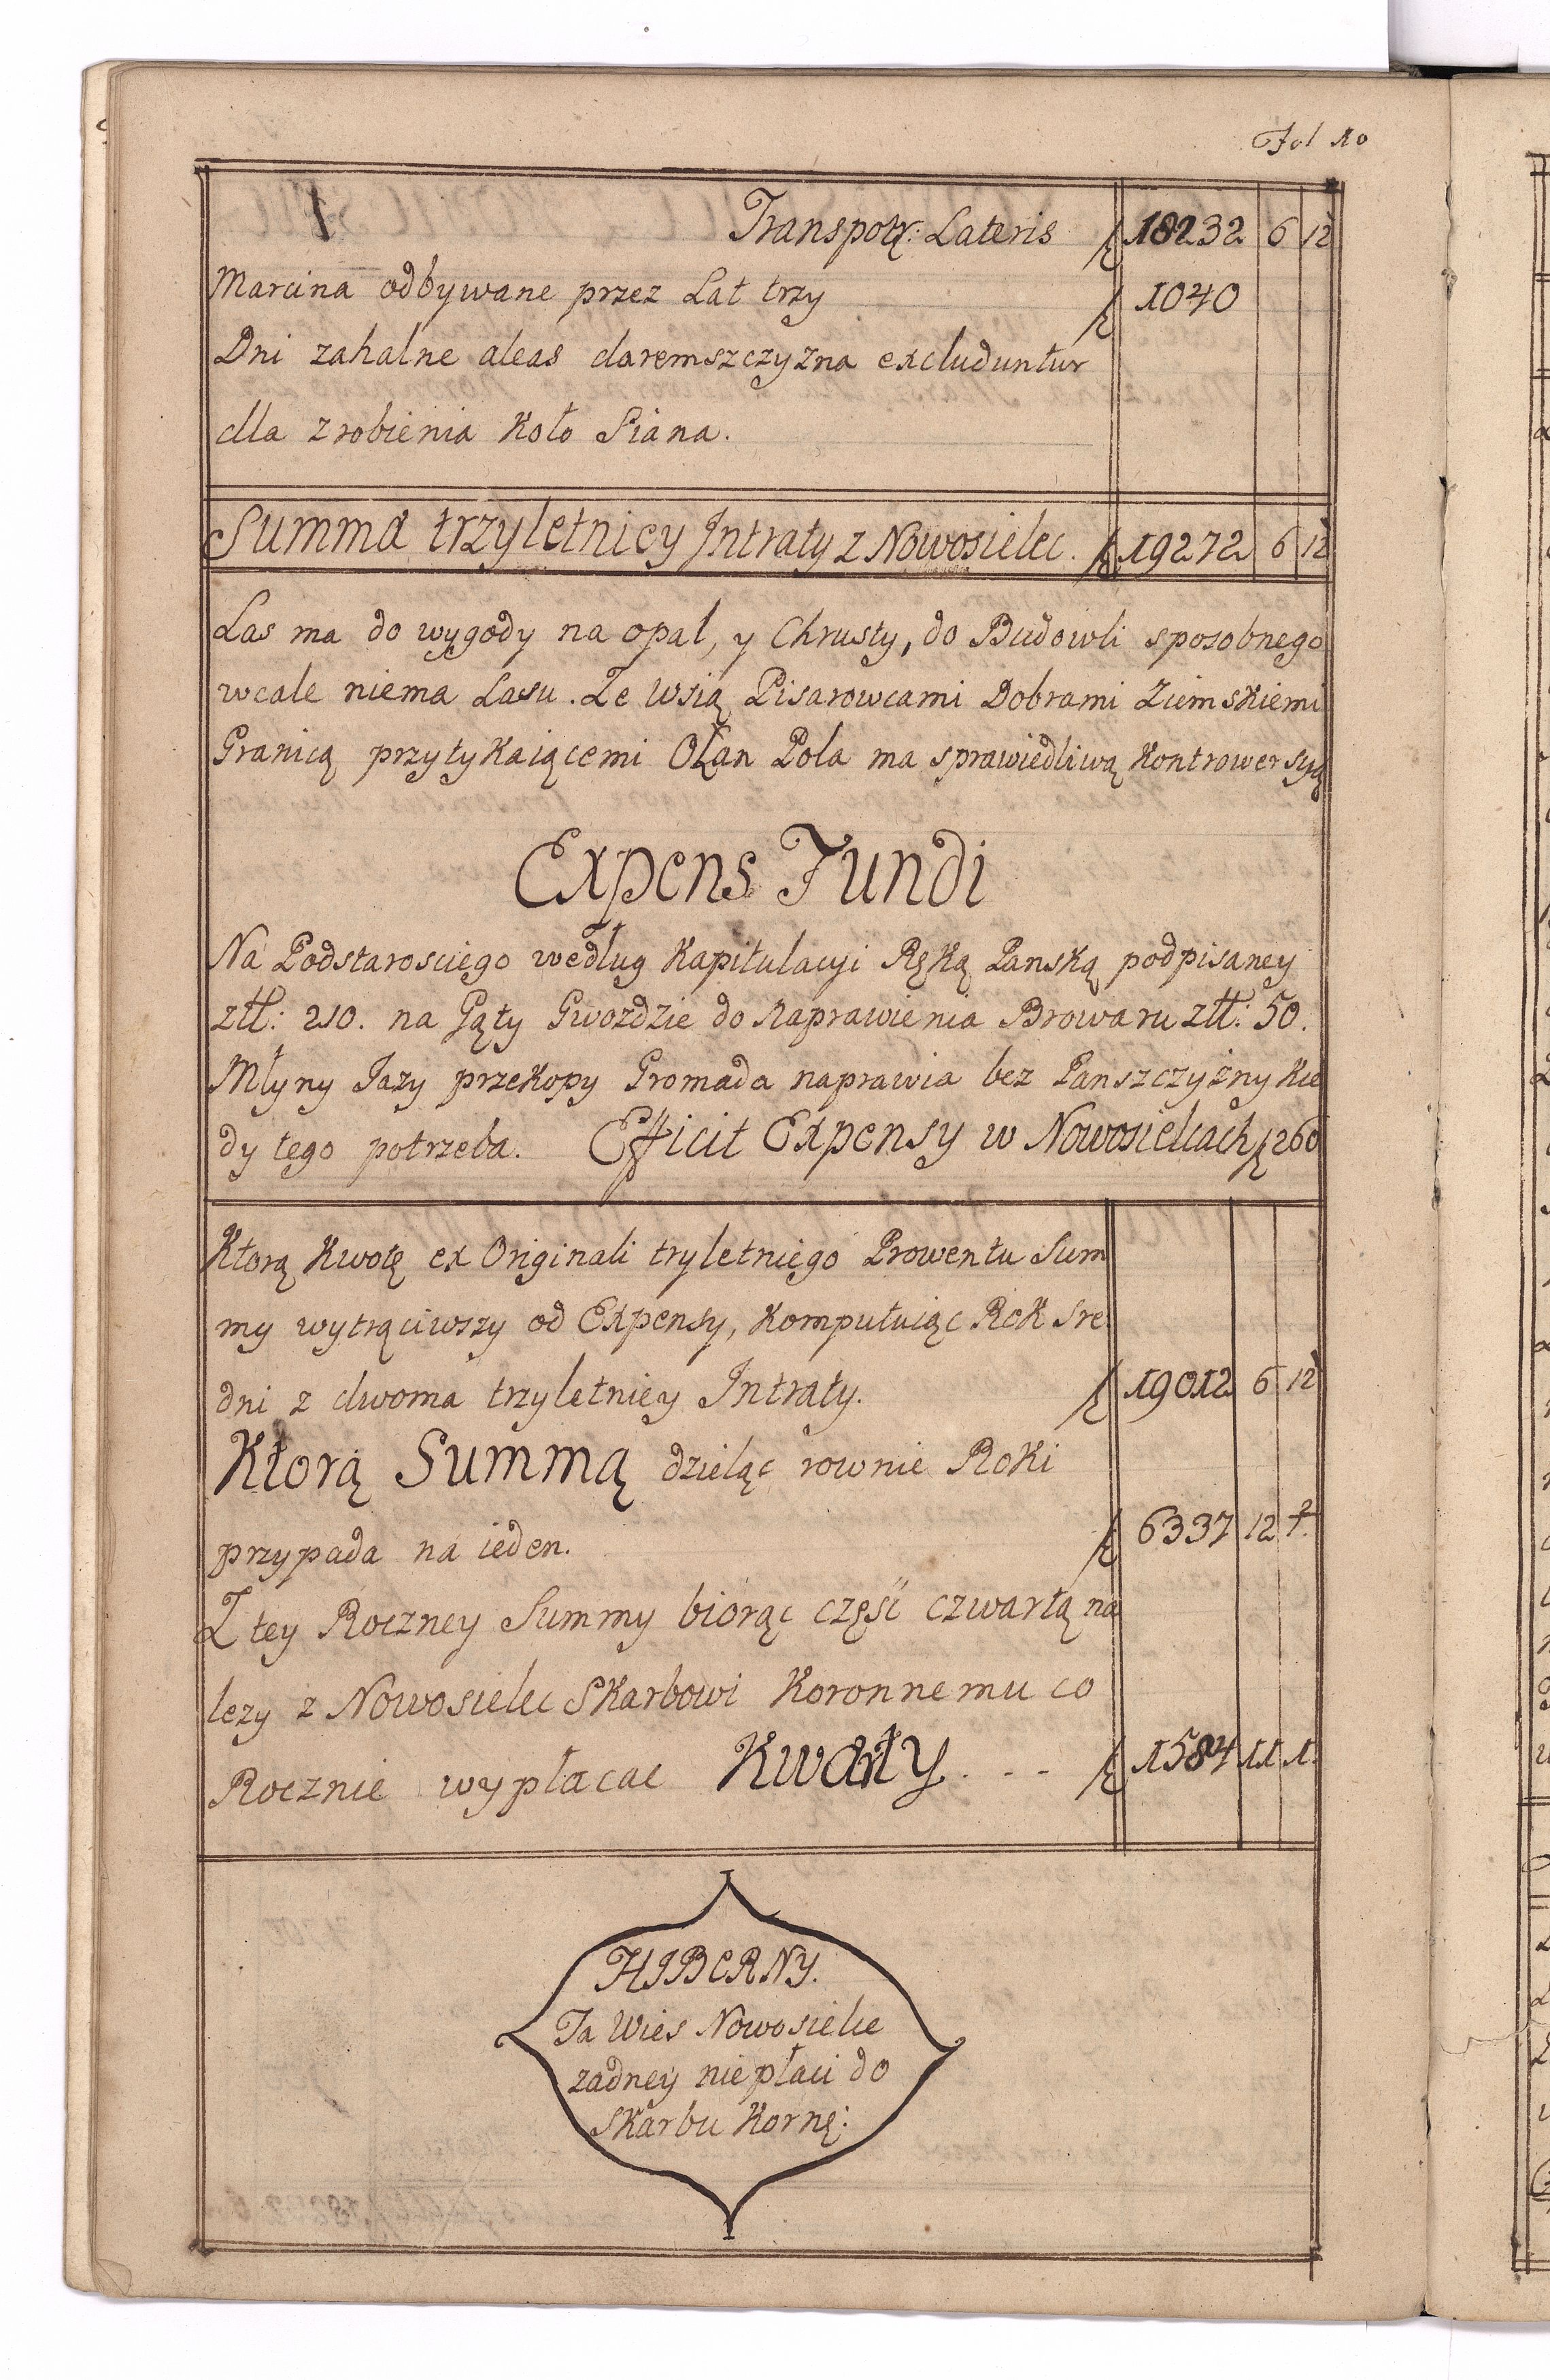 Fol 10
Transpotę: Lateris 18232 6 12
Marcina odbywane przez Lat trzy 1040
Dni zahalne aleas daremszczyzna excluduntur
dla zrobienia Koło Siana.
Summa trzyletniey Intraty z Nowosielec. 19272 6 12
Las ma do wygody na opał, y Chrusty, do Budowli sposobnego
wcale niema Lasu. Ze Wsią Pisarowcami Dobrami Ziemskiemi
Granicą przytykaiącemi O Łan Pola ma sprawiedliwą Kontrowersyą
Expens Fundi
Na Podstarosciego według Kapitulacyi Ręką Panską podpisaney
złł: 210. na Gąty Gwozdzie do Naprawienia Browaru złł: 50.
Młyny Jazy przekopy Gromada naprawia bez Panszczyzny Kie
dy tego potrzeba. Efficit Expensy w Nowosielcach 260
Ktorą Kwotę ex Originali tryletniego Prowentu Sum
my wytrąciwszy od Expensy, Komputuiąc Rok Sre
dni z dwoma trzyletniey Intraty. 19012 6 12
Ktorą Summą dzieląc rownie Roki
przypada na ieden. 6337 12
Z tey Roczney Summy biorąc część czwartą na
lezy z Nowosielec Skarbowi Koronnemu co
Rocznie wypłacac Kwarty . - - 1584 11 1.
HIBERNY.
Ta Wies Nowosielce
zadney niepłaci do
Skarbu Kornę: